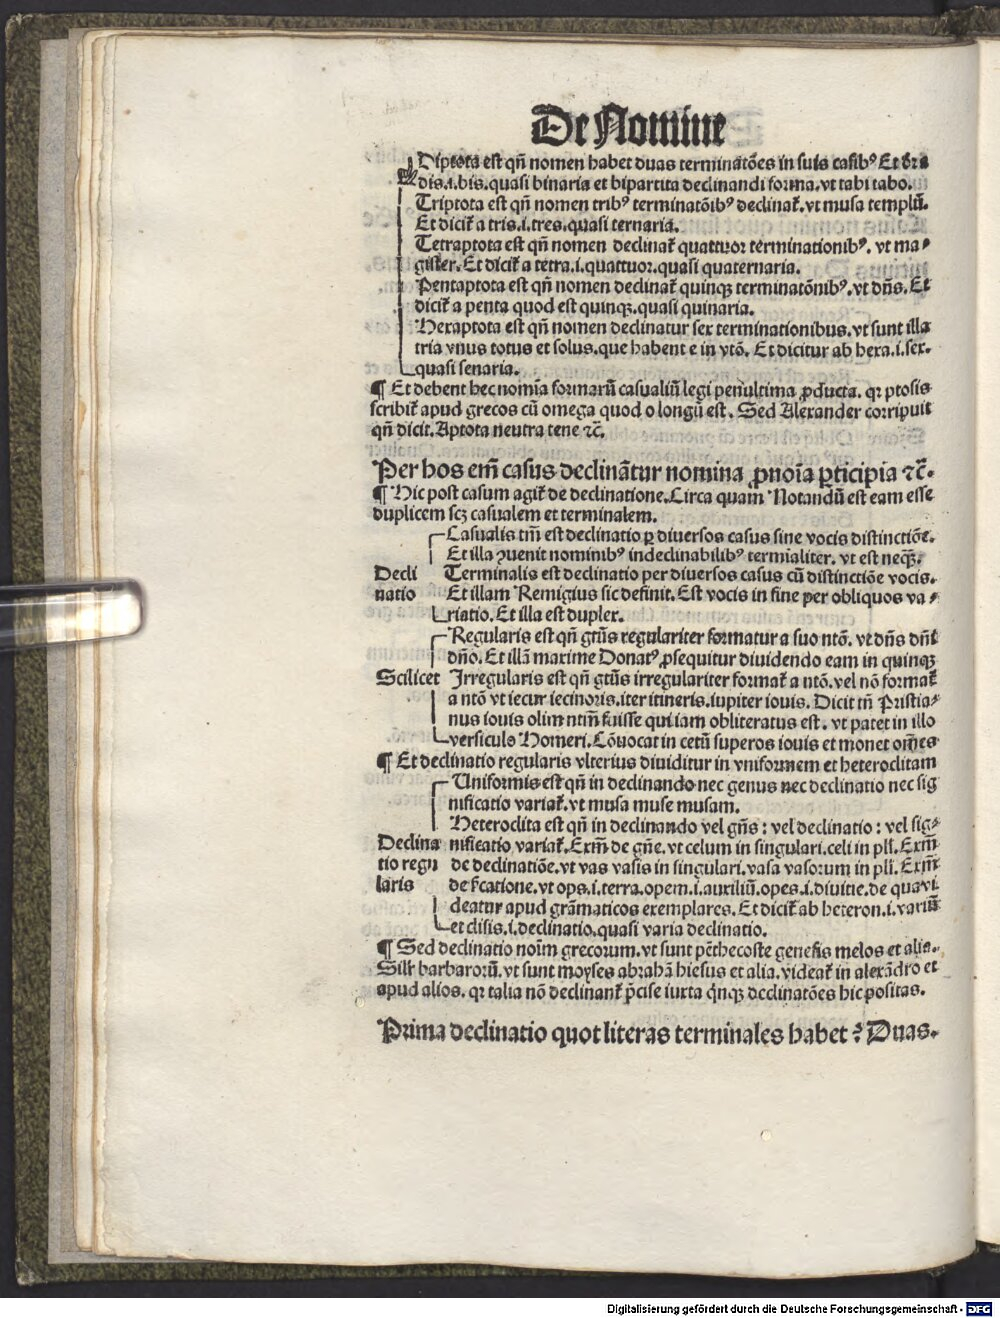 De Nomine
Diptota est qn̄ nomen habet duas terminatōes in suis casibꝰ Et dr̄ a
dis.i.bis.quasi binaria et bipartita declinandi forma.vt tabi tabo.
Triptota est qn̄ nomen tribꝰ terminatōibꝰ declinat̄.vt musa templū.
Et dicit̄ a tris.i.tres.quasi ternaria.
Tetraptota est qn̄ nomen declinat̄ quattuor terminationibꝰ. vt ma⸗
gister. Et dicit̄ a tetra.i.quattuor.quasi quaternaria.
Pentaptota est qn̄ nomen declinat̄ quinqꝫ terminatōnibꝰ.vt dn̄s. Et
dicit̄ a penta quod est quinqꝫ.quasi quinaria.
Hexaptota est qn̄ nomen declinatur sex terminationibus.vt sunt illa
tria vnus totus et solus.que habent e in vtō. Et dicitur ab hexa.i.sex.
quasi senaria.
¶ Et debent hec nomīa formarū casualiū legi penultima ꝓducta. qꝛ ptosis
scribit̄ apud grecos cū omega quod o longū est. Sed Alexander corripuit
qn̄ dicit. Aptota neutra tene ⁊c̄.
Per hos em̄ casus declinātur nomina ꝓnoīa ꝑticipia ⁊c̄.
¶ Hic post casum agit̄ de declinatione. Circa quam Notandū est eam esse
duplicem scꝫ casualem et terminalem.
Casualis tm̄ est declinatio ꝑ diuersos casus sine vocis distinctiōe.
Et illa ꝯuenit nominibꝰ indeclinabilibꝰ termialiter. vt est neqꝫ̄.
Decli Terminalis est declinatio per diuersos casus cū distinctiōe vocis.
natio Et illam Remigius sic definit. Est vocis in fine per obliquos va⸗
riatio. Et illa est duplex.
Regularis est qn̄ gtūs regulariter formatur a suo ntō. vt dn̄s dn̄i
dn̄o. Et illā maxime Donatꝰ ꝓsequitur diuidendo eam in quinqꝫ
Scilicet Irregularis est qn̄ gtūs irregulariter format̄ a ntō.vel nō format̄
a ntō vt iecur iecinoris.iter itineris.iupiter iouis. Dicit tn̄ Pristia⸗
nus iouis olim ntm̄ fuisse qui iam obliteratus est. vt patet in illo
versiculo Homeri. Cōuocat in cetū superos iouis et monet om̄es
¶ Et declinatio regularis vlterius diuiditur in vniformem et heteroclitam
Uniformis est qn̄ in declinando nec genus nec declinatio nec sig
nificatio variat̄.vt musa muse musam.
Heteroclita est qn̄ in declinando vel gn̄s : vel declinatio : vel sig⸗
Declina nificatio variat̄. Exm̄ de gn̄e. vt celum in singulari.celi in pli̅. Exm̄
tio regu de declinatiōe.vt vas vasis in singulari.vasa vasorum in pli̅. Exm̄
laris de sc̄atione.vt ops.i.terra.opem.i.auxiliū.opes.i.diuitie.de qua vi
deatur apud grāmaticos exemplares. Et dicit̄ ab heteron.i.variū
et clisis.i.declinatio.quasi varia declinatio.
¶ Sed declinatio noīm grecorum.vt sunt pēthecoste genesis melos et alia.
Silr̄ barbarorū.vt sunt moyses abrahā hiesus et alia.videat̄ in alexādro et
apud alios. qꝛ talia nō declinant̄ p̄cise iuxta q̄nqꝫ declinatōes hic positas.
Prima declinatio quot literas terminales habet ? Duas.
Digitalisierung gefördert durch die Deutsche Forschungsgemeinschaft - DFG